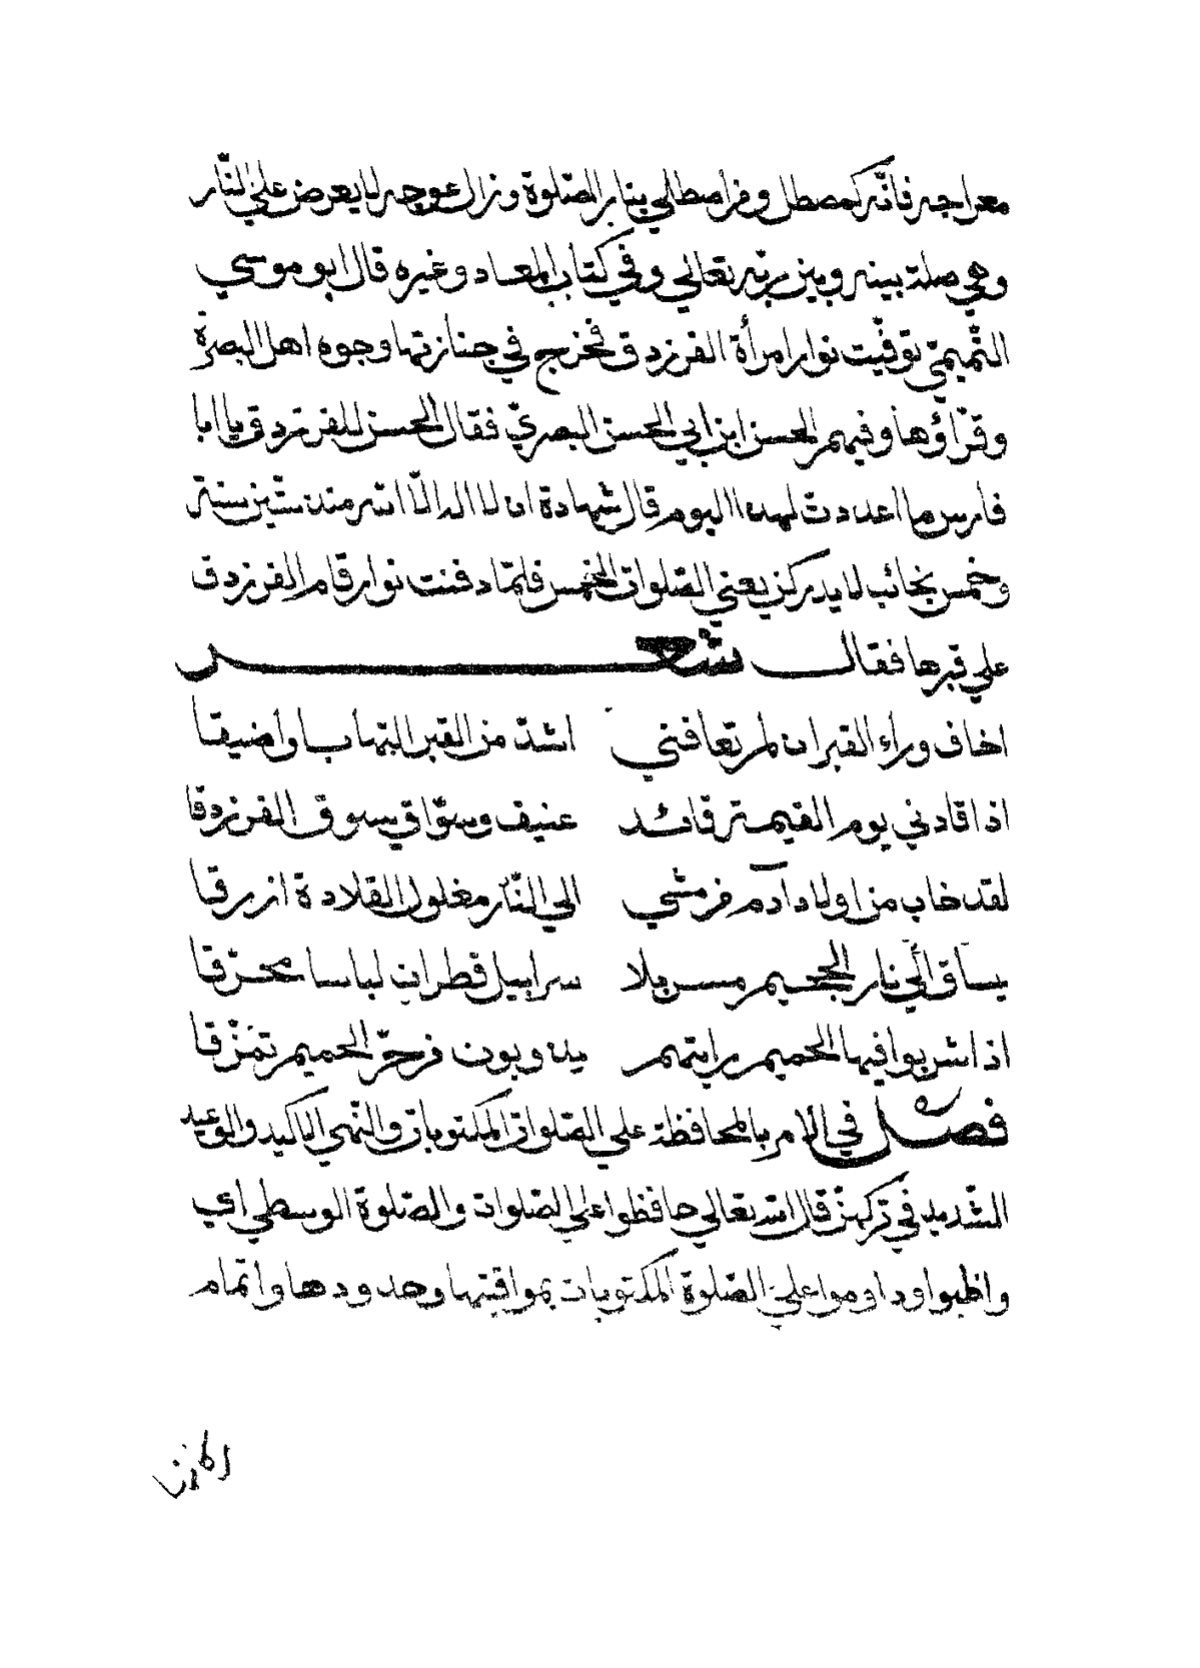 معراجه فانّه كمصطل ومن اصطلي بنار الصّلوة وزال عوجه لا يعرض علي النّار
وهي صلة بينه وبين ربّه تعالي وفي كتاب المعاد وغيره قال ابو موسي
التّميميّ توفّيت نوار امرأة الفرزدق فخرج في جنازتها وجوه اهل البصرة
وقرّاؤها وفيهم الحسن ابن ابي الحسن البصريّ فقال الحسن للفرزدق يا ابا
فارس ما اعددت لهذا اليوم قال شهادة ان لا اله الّا الله منذ ستّين سنة
وخمس نجائب لا يدركن يعني الصّلوات الخمس فلمّا دفنت نوار قام الفرزدق
علي قبرها فقال شعر
اخاف وراء القبر ان لم تعافني اشدّ من القبر التهابا واضيقا
اذا قادني يوم القيمة قائد عنيف وسوّاق يسوق الفرزدقا
لقد خاب من اولاد آدم من مشي الي النّار مغلول القلادة ازرقا
يساق الي نار الجحيم مسربلا سرابيل قطران لباسا محرّقا
اذا شربوا فيها الحميم رايتهم يذوبون من حرّ الحميم تمزّقا
فصل في الامر بالمحافظة علي الصّلوات المكتوبات والنّهي الاكيد والوعيد
الشديد في تركهنّ قال الله تعالي حافظوا علي الصّلوات والصّلوة الوسطي اي
واظبوا وداوموا علي الصّلوة المكتوبات بمواقيتها وحدودها واتمام
اركانها